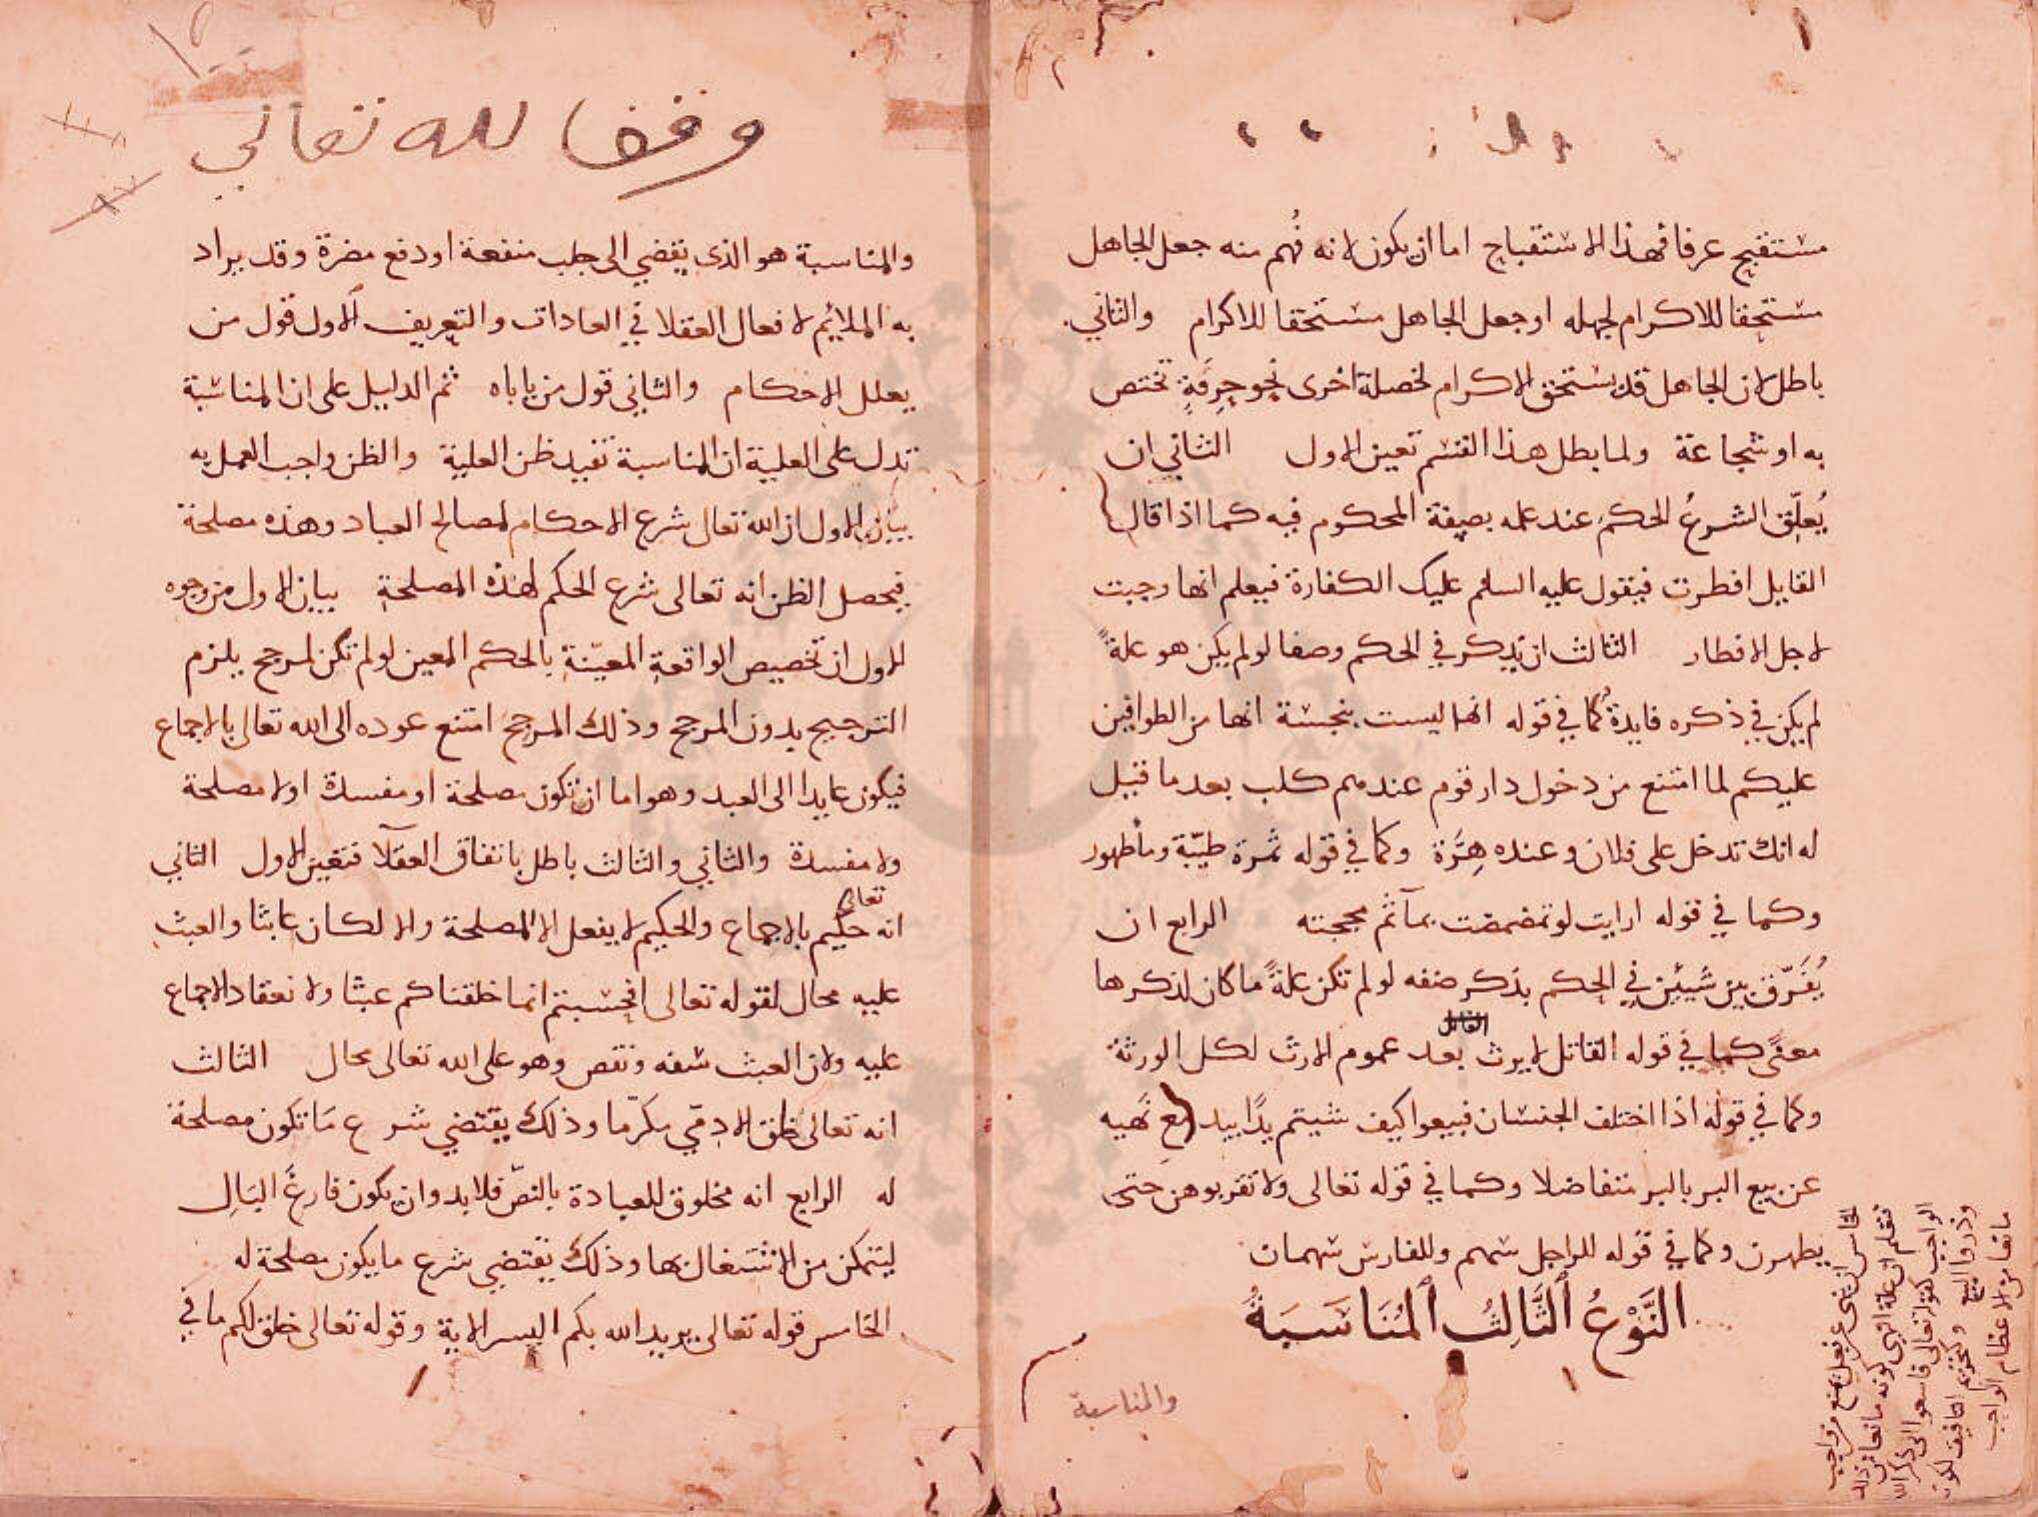 مستقبح عرفا فهذا الاستقباح اما ان يكون لانه فُهم منه جعل الجاهل
مستحقا للاكرام لجهله او جعل الجاهل مستحقا للاكرام والثاني
باطل لان الجاهل قد يستحق الاكرام لخصلة اخرى نحو حِرفَةٍ تختص
به او شجاعة ولما بطل هذا القسم تعين الاول الثاني ان
يُعلّق الشرعُ الحكم عند علمه بصفة المحكوم فيه كما اذا قال
القايل افطرت فيقول عليه السلم عليك الكفارة فيعلم انها وجبت
لاجل الافطار الثالث ان يذكر في الحكم وصفا لو لم يكن هو علةً
لم يكن في ذكره فايدةٌ كما في قوله انها ليست بنجسة انها من الطوافين
عليكم لما امتنع من دخول دار قوم عندهم كلب بعد ما قيل
له انك تدخل على فلان وعنده هِرَّة وكما في قوله ثمرة طيّبة وماء طهور
وكما في قوله ارايت لو تمضمضت بماء ثم مججته الرابع ان
يُفَرّق بين شَيئين في الحكم بذكر صفه لو لم تكن علةً ما كان لذكرها
معنًى كما في قوله القاتل لا يرث بعد عموم الارث لكل الورثة
وكما في قوله اذا اختلف الجنسان فبيعوا كيف شيتم يدًا بيد مع نَهيه
عن بيع البر بالبر متفاضلا وكما في قوله تعالى ولا تقربوهن حتى
يطهرن وكما في قوله للراجل سهم وللفارس سهمان
النَّوْعُ الثَّالِثُ المُنَاسَبَةُ
والمناسبة
الخامس ان ينهى عن فعل يمنع من واجب
فنعلم ان علة النهى كونه مانعا من ذلك
الواجب كقوله تعالى فاسعوا الى ذكر الله
وذروا البيع
مانعا من الاعظام الواجب
وقفا لله تعالى
والمناسبة هو الذى يفضي الى جلب منفعة او دفع مضرة وقد يراد
به الملائم لافعال العقلا في العادات والتعريف الاول قول من
يعلل الاحكام والثاني قول من ياباه ثم الدليل على ان المناسبة
تدل على العلية ان المناسبة تفيد ظن العلية والظن واجب العمل به
بيان الاول ان الله تعالى شرع الاحكام لمصالح العباد وهذه مصلحة
فيحصل الظن انه تعالى شرع الحكم لهذه المصلحة بيان الاول من وجوه
الاول ان تخصيص الواقعة المعيّنة بالحكم المعين لو لم تكن لمرجح يلزم
الترجيح بدون المرجح وذلك المرجح امتنع عوده الى الله تعالى بالاجماع
فيكون عايدا الى العبد وهو اما ان تكون مصلحة او مفسدة او لا مصلحة
ولا مفسدة والثاني والثالث باطل باتفاق العقلآ فتعين الاول الثاني
انه تعالى حكيم بالاجماع والحكيم لا يفعل الا لمصلحة والا لكان عابثا والعبث
عليه محال لقوله تعالى افحسبتم انما خلقناكم عبثا ولانعقاد الاجماع
عليه ولان العبث سفه ونقص وهو على الله تعالى محال الثالث
انه تعالى خلق الادمّي مكرّما وذلك يقتضي شرع مَا تكون مصلحة
له الرابع انه مخلوق للعبادة بالنصّ فلا بد وان يكون فارغَ البَالِ
ليتمكن من الاشتغال بها وذلك يقتضي شرع ما يكون مصلحة له
الخامس قوله تعالى يريد الله بكم اليسر الاية وقوله تعالى خلق لكم ما في